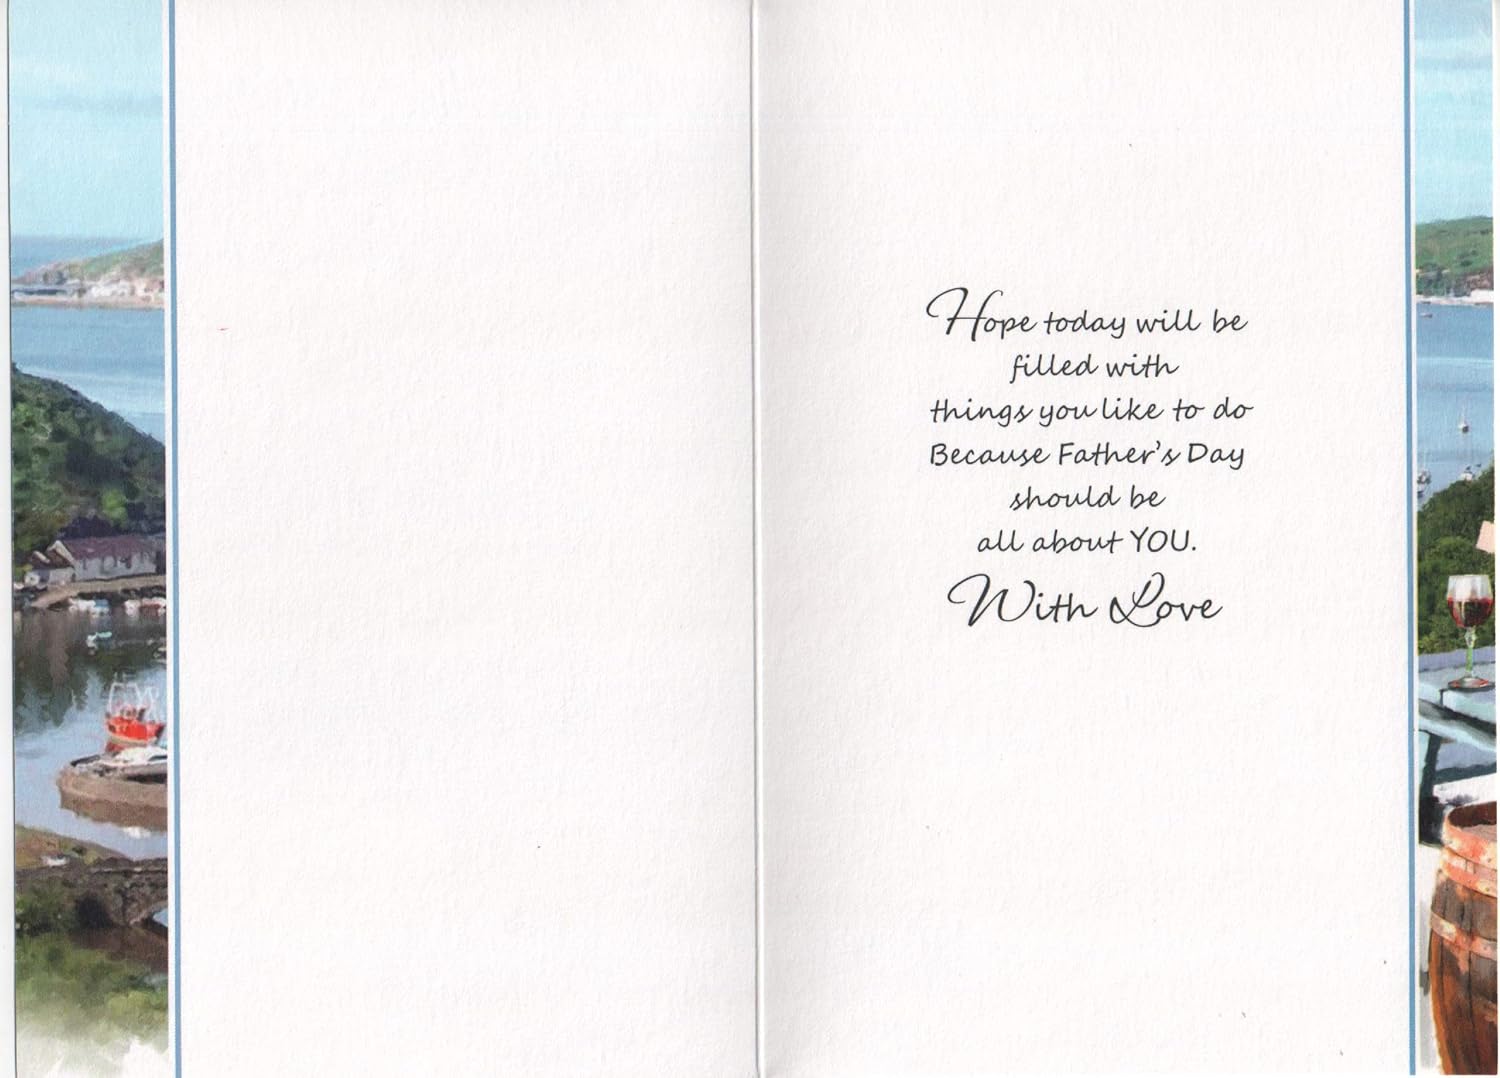 Hope today will be
filled with
things you like to do
Because Father's Day
should be
all about YOU.
With Love